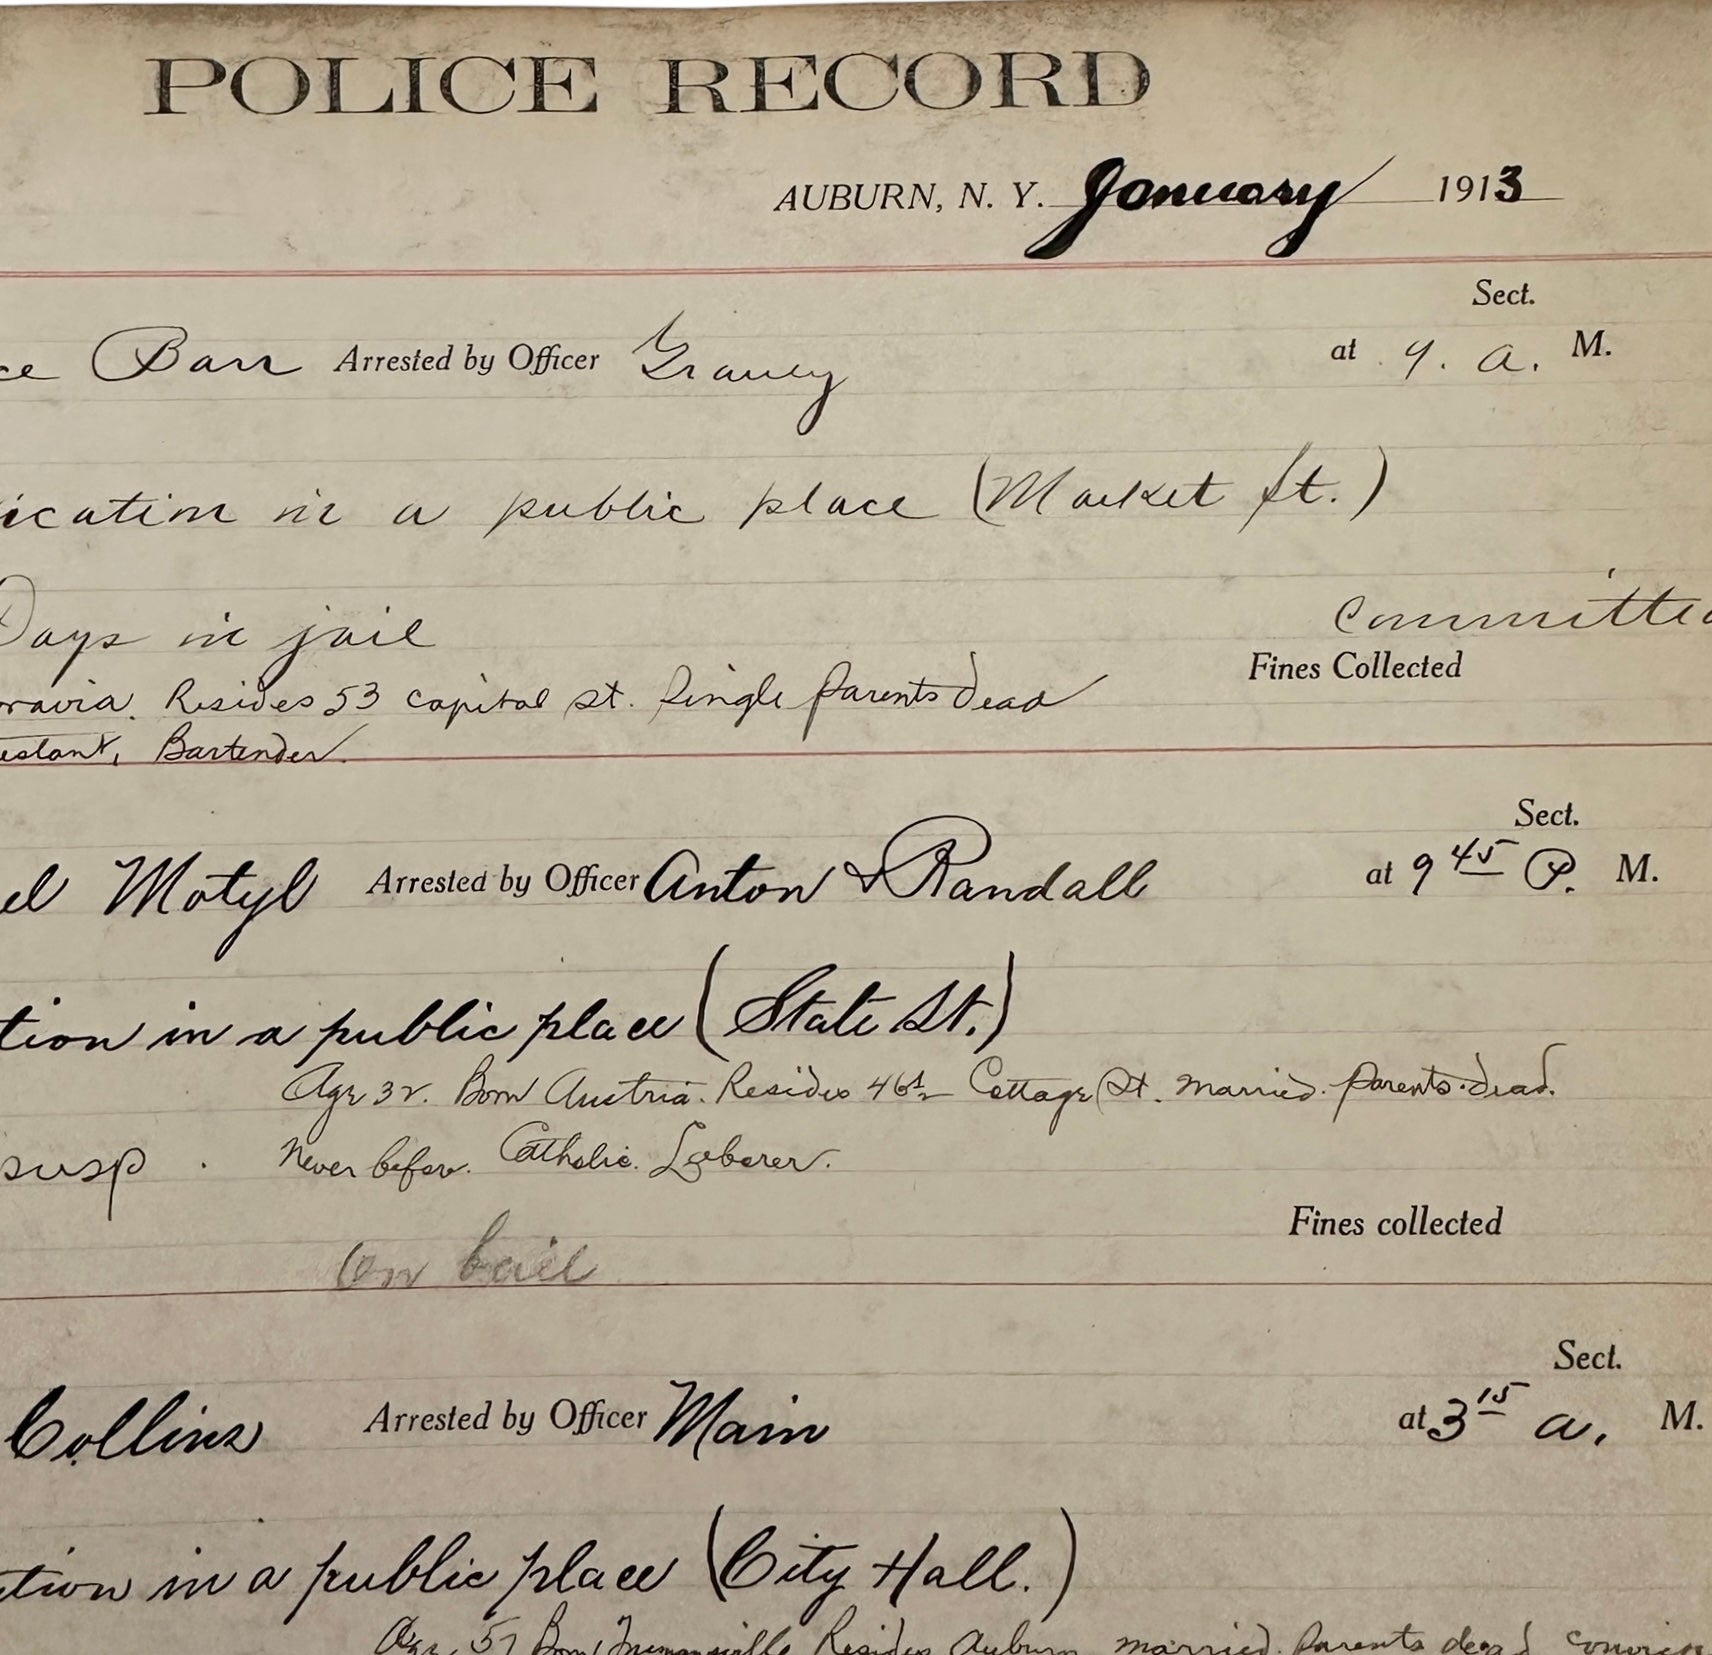 POLICE RECORD
AUBURN, N. Y. January 1913
Sect.
ce Barr Arrested by Officer Graney at 9. a. M.
ication in a public place (Market St.)
Days in jail Committed
Fines Collected
oravia. Resides 53 Capital St. Single Parents Dead
estant, Bartender.
Sect.
el Motyl Arrested by Officer Anton & Randall at 9 45 P. M.
tion in a public place (State St.)
Age 32. Born Austria. Resides 46½ Cottage St. Married. Parents dead.
susp. Never before. Catholic. Laborer.
Fines collected
On bail
Sect.
Collins Arrested by Officer Main at 3 15 a. M.
tion in a public place (City Hall.)
Age 57 Born Resides Auburn married. Parents dead